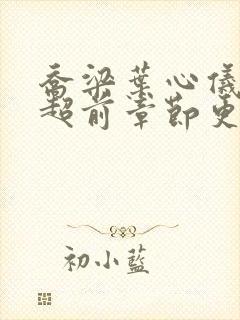 乔梁叶心仪
超前章节更
初小蓝